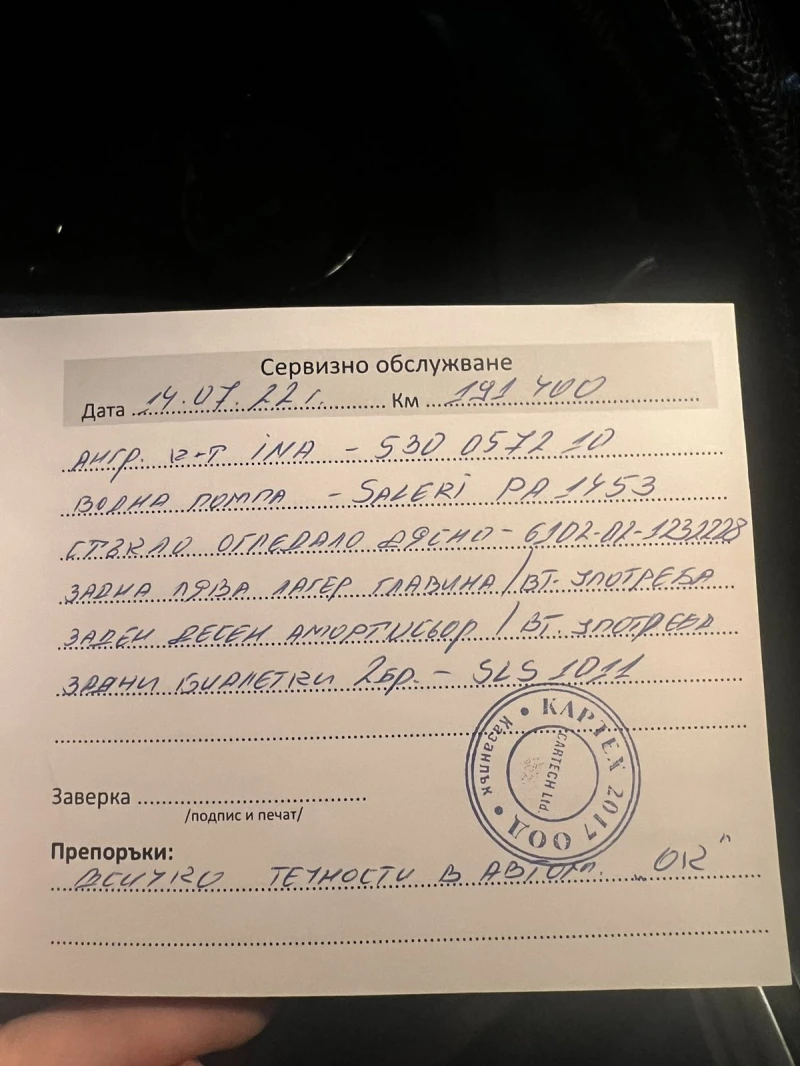 Сервизно обслужване
Дата 14.07.22г. Км 191 400
АНГР. К-Т INA - 530 0572 10
ВОДНА ПОМПА - SALERI PA 1453
СТЪКЛО ОГЛЕДАЛО ДЯСНО - 6102-02-1232228
ЗАДНА ЛЯВА ЛАГЕР ГЛАВИНА / ВТ. УПОТРЕБА
ЗАДЕН ДЕСЕН АМОРТИСЬОР / ВТ. УПОТРЕБА
ЗАДНИ БИАЛЕТКИ 2БР. - SLS 1011
КАРТЕХ 2017 ООД
Казанлък
CARTECH Ltd.
Заверка
/подпис и печат/
Препоръки:
ВСИЧКО ТЕЧНОСТИ В АВТОМ. „ОК"